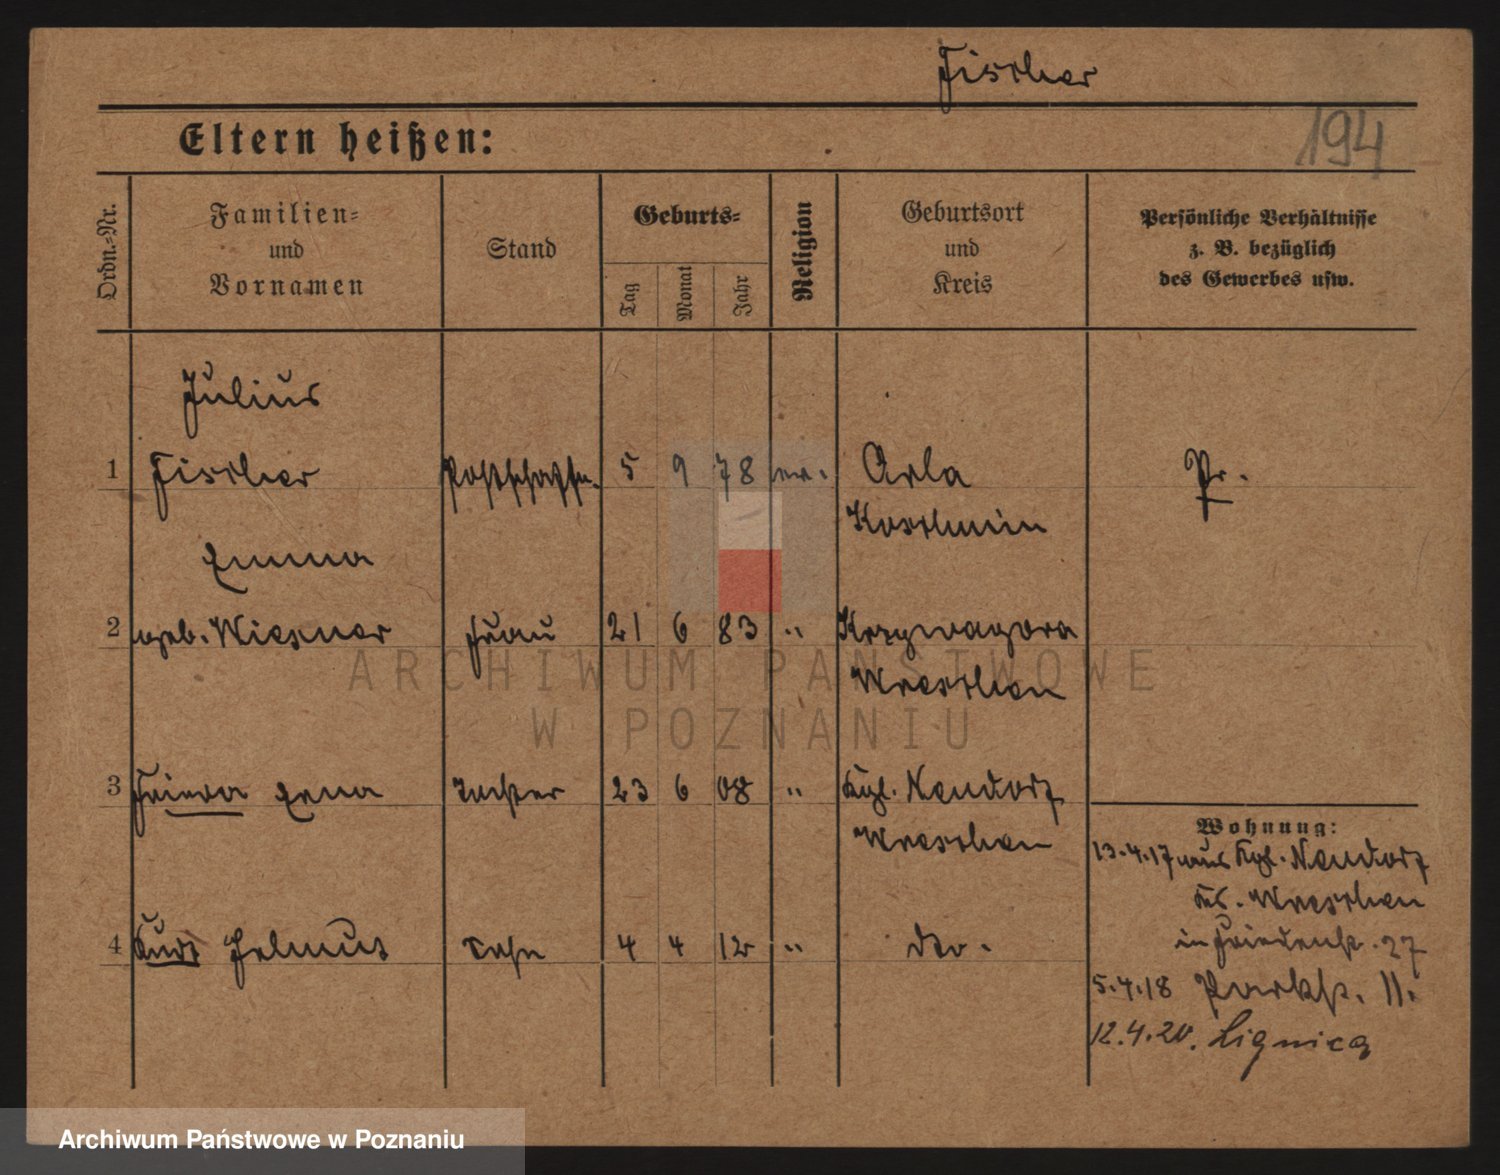 Fischer
194
Eltern heißen:
Ordn.-Nr.
Familien- und Vornamen
Stand
Geburts-
Tag
Monat
Jahr
Religion
Geburtsort und Kreis
Persönliche Verhältnisse z. B. bezüglich des Gewerbes usw.
Julius
1 Fischer Postschaffn. 5 9 78 ev. Arla Pr.
Koschmin
Emma
2 geb. Wiesner Frau 21 6 83 " Krzywagora
Wreschen
3 Frieda Erna Tochter 23 6 08 " Kgl. Neudorf
Wreschen
4 Kurt Helmut Sohn 4 4 12 " dto.
Wohnung:
13.4.17 aus Kgl. Neudorf
Krs. Wreschen
in Friedenstr. 27
5.4.18 Parkstr. 11.
12.4.20. Lignica
ARCHIWUM PAŃSTWOWE
W POZNANIU
Archiwum Państwowe w Poznaniu